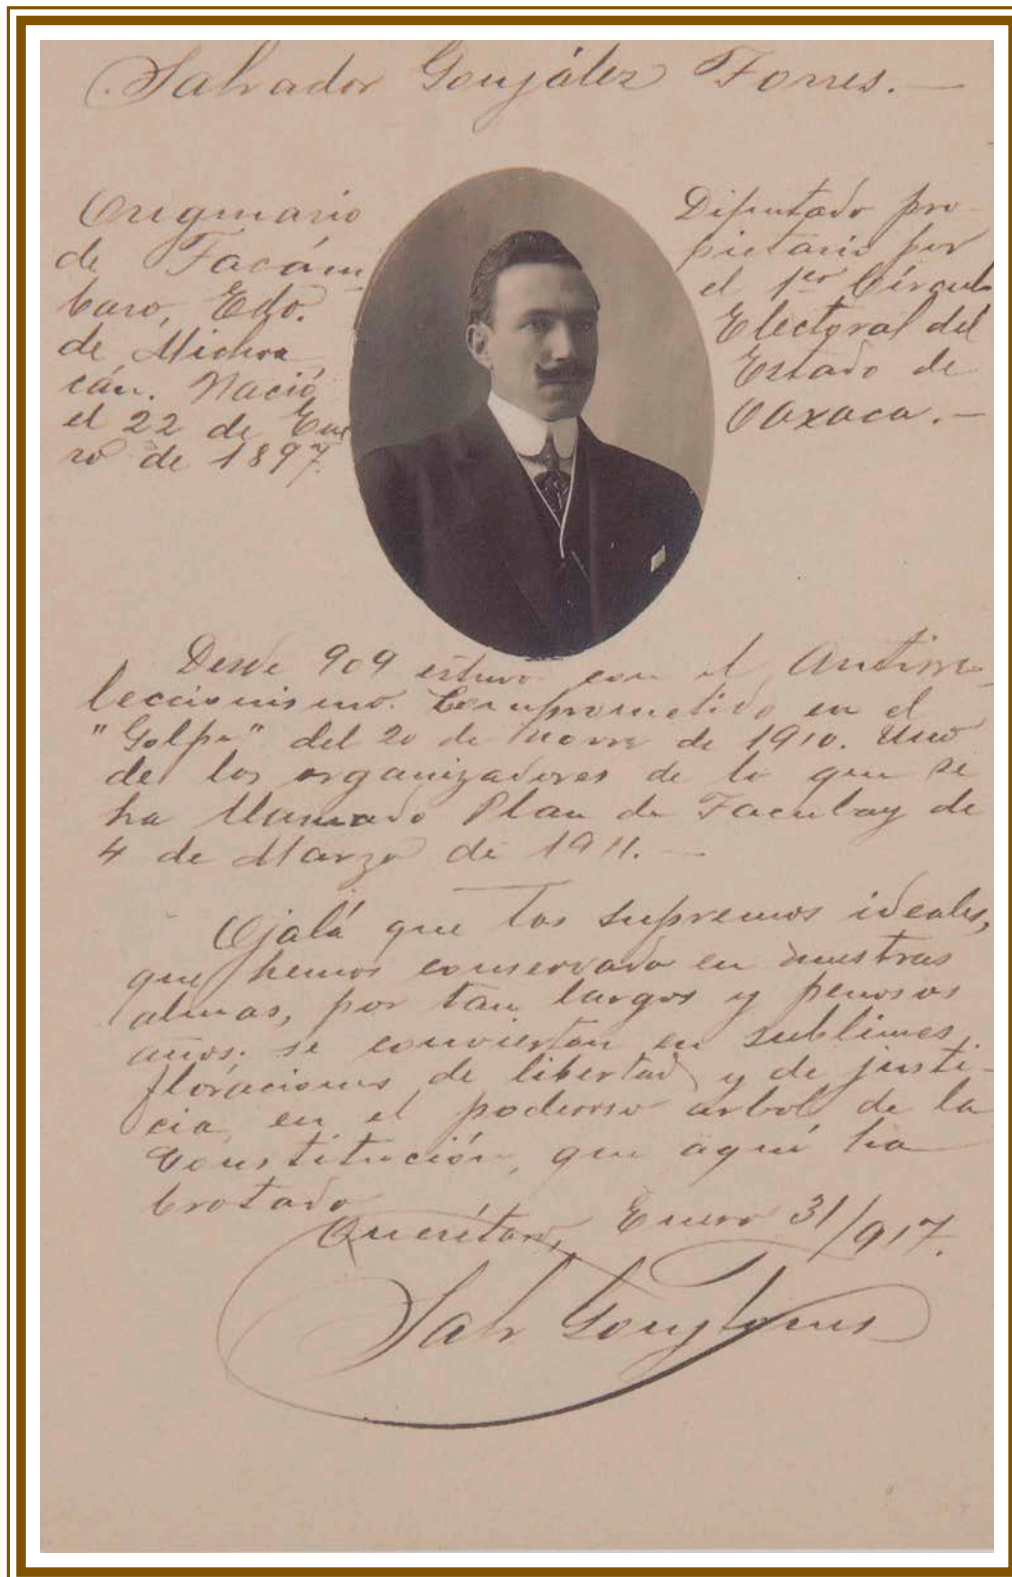 Salvador González Torres.—
Originario
de Tacám-
baro, Edo.
de Michoa
cán. Nació
el 22 de Ene
ro de 1897.
Diputado pro-
pietario por
el 1er Círculo
Electoral del
Estado de
Oaxaca.—
Desde 909 estuvo con el Antirre-
leccionismo. Comprometido en el
"Golpe" del 20 de Novre de 1910. Uno
de los organizadores de lo que se
ha llamado Plan de Tacubay de
4 de Marzo de 1911.—
Ojalá que los supremos ideales,
que hemos conservado en nuestras
almas, por tan largos y penosos
años, se conviertan en sublimes
floraciones de libertad y de justi-
cia, en el poderoso árbol de la
Constitución, que aquí ha
brotado
Querétaro, Enero 31/917.
Salv Gonz Torres